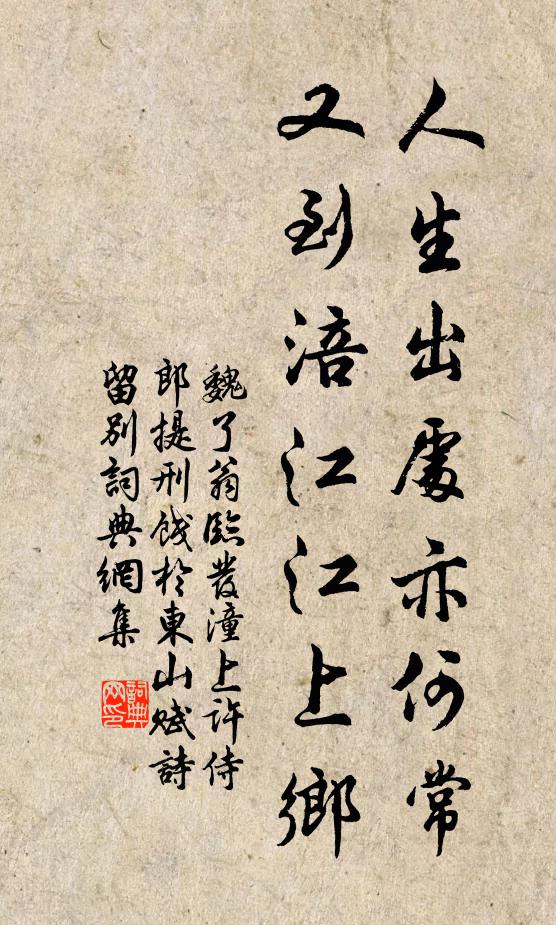 人生出處亦何常
又到涪江江上鄉
魏了翁臨發潼上許侍
郎提刑餞於東山賦詩
留別詞典網集
詞典
网印